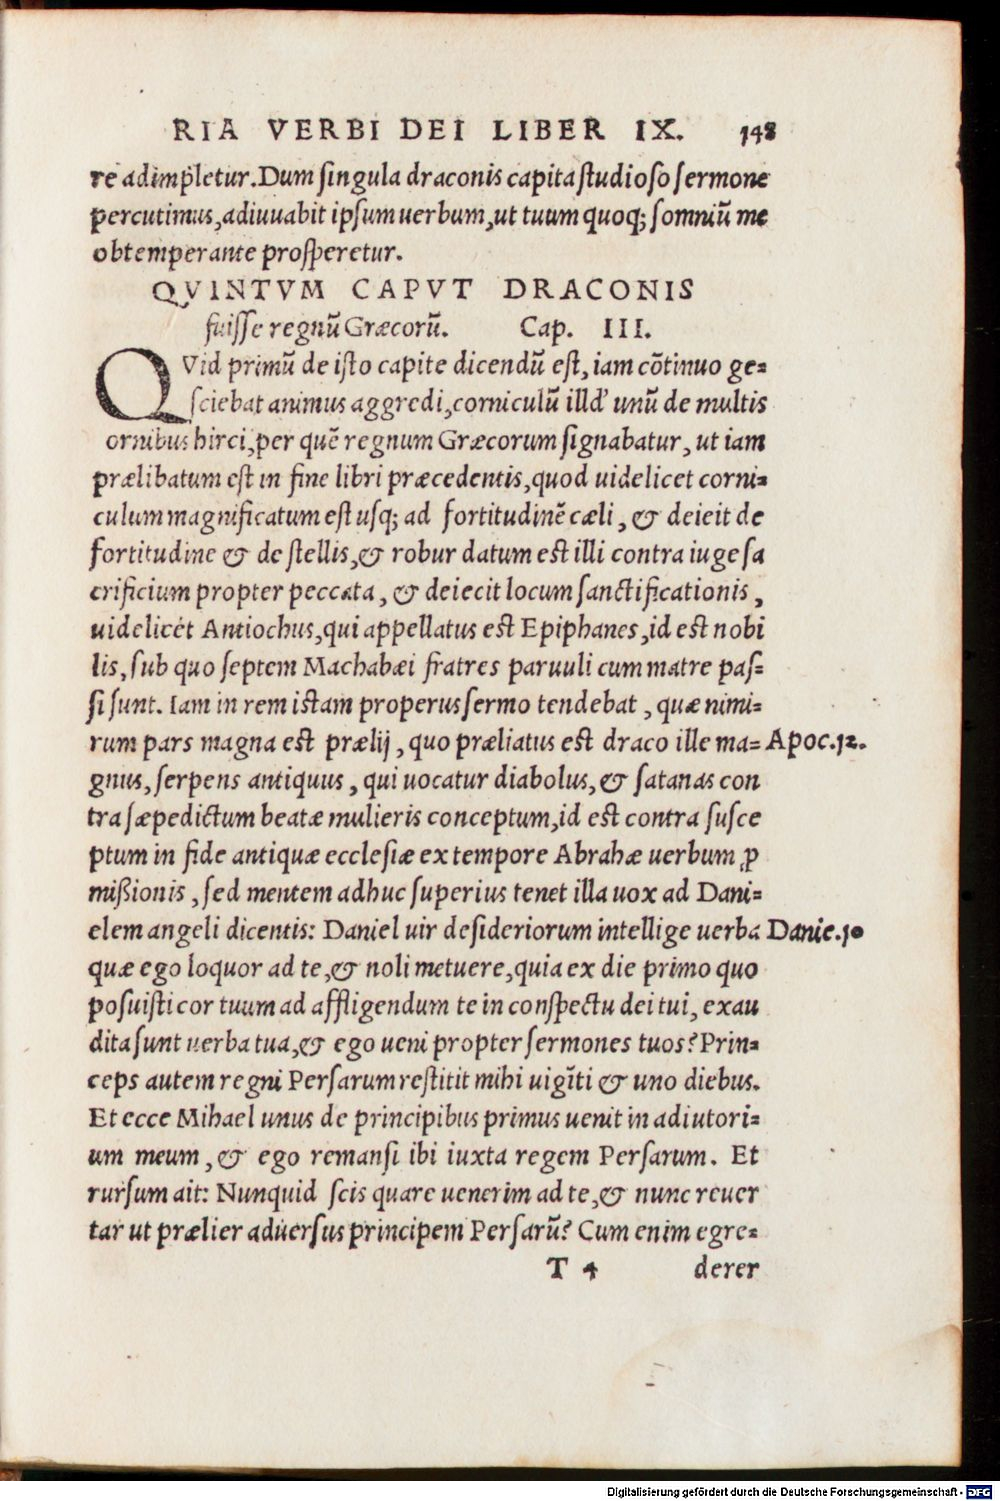 RIA VERBI DEI LIBER IX. 148
re adimpletur. Dum singula draconis capita studioso sermone
percutimus, adiuuabit ipsum uerbum, ut tuum quoq; somniũ me
obtemperante prosperetur.
QVINTVM CAPVT DRACONIS
fuisse regnũ Græcorũ. Cap. III.
QVid primũ de isto capite dicendũ est, iam cõtinuo ge-
sciebat animus aggredi, corniculũ illď unũ de multis
ornibus hirci, per quẽ regnum Græcorum signabatur, ut iam
prælibatum est in fine libri præcedentis, quod uidelicet corni-
culum magnificatum est usq; ad fortitudinẽ cæli, & deieit de
fortitudine & de stellis, & robur datum est illi contra iuge sa
crificium propter peccata, & deiecit locum sanctificationis,
uidelicet Antiochus, qui appellatus est Epiphanes, id est nobi
lis, sub quo septem Machabæi fratres paruuli cum matre pas-
si sunt. Iam in rem istam properus sermo tendebat, quæ nimi-
rum pars magna est prælij, quo præliatus est draco ille ma- Apoc.12.
gnus, serpens antiquus, qui uocatur diabolus, & satanas con
tra sæpedictum beatæ mulieris conceptum, id est contra susce
ptum in fide antiquæ ecclesiæ ex tempore Abrahæ uerbum ꝓ
mißionis, sed mentem adhuc superius tenet illa uox ad Dani-
elem angeli dicentis: Daniel uir desideriorum intellige uerba Danie.10
quæ ego loquor ad te, & noli metuere, quia ex die primo quo
posuisti cor tuum ad affligendum te in conspectu dei tui, exau
dita sunt uerba tua, & ego ueni propter sermones tuos? Prin-
ceps autem regni Persarum restitit mihi uigĩti & uno diebus.
Et ecce Mihael unus de principibus primus uenit in adiutori-
um meum, & ego remansi ibi iuxta regem Persarum. Et
rursum ait: Nunquid scis quare uenerim ad te, & nunc reuer
tar ut prælier aduersus principem Persarũ? Cum enim egre-
T 4 derer
Digitalisierung gefördert durch die Deutsche Forschungsgemeinschaft - DFG